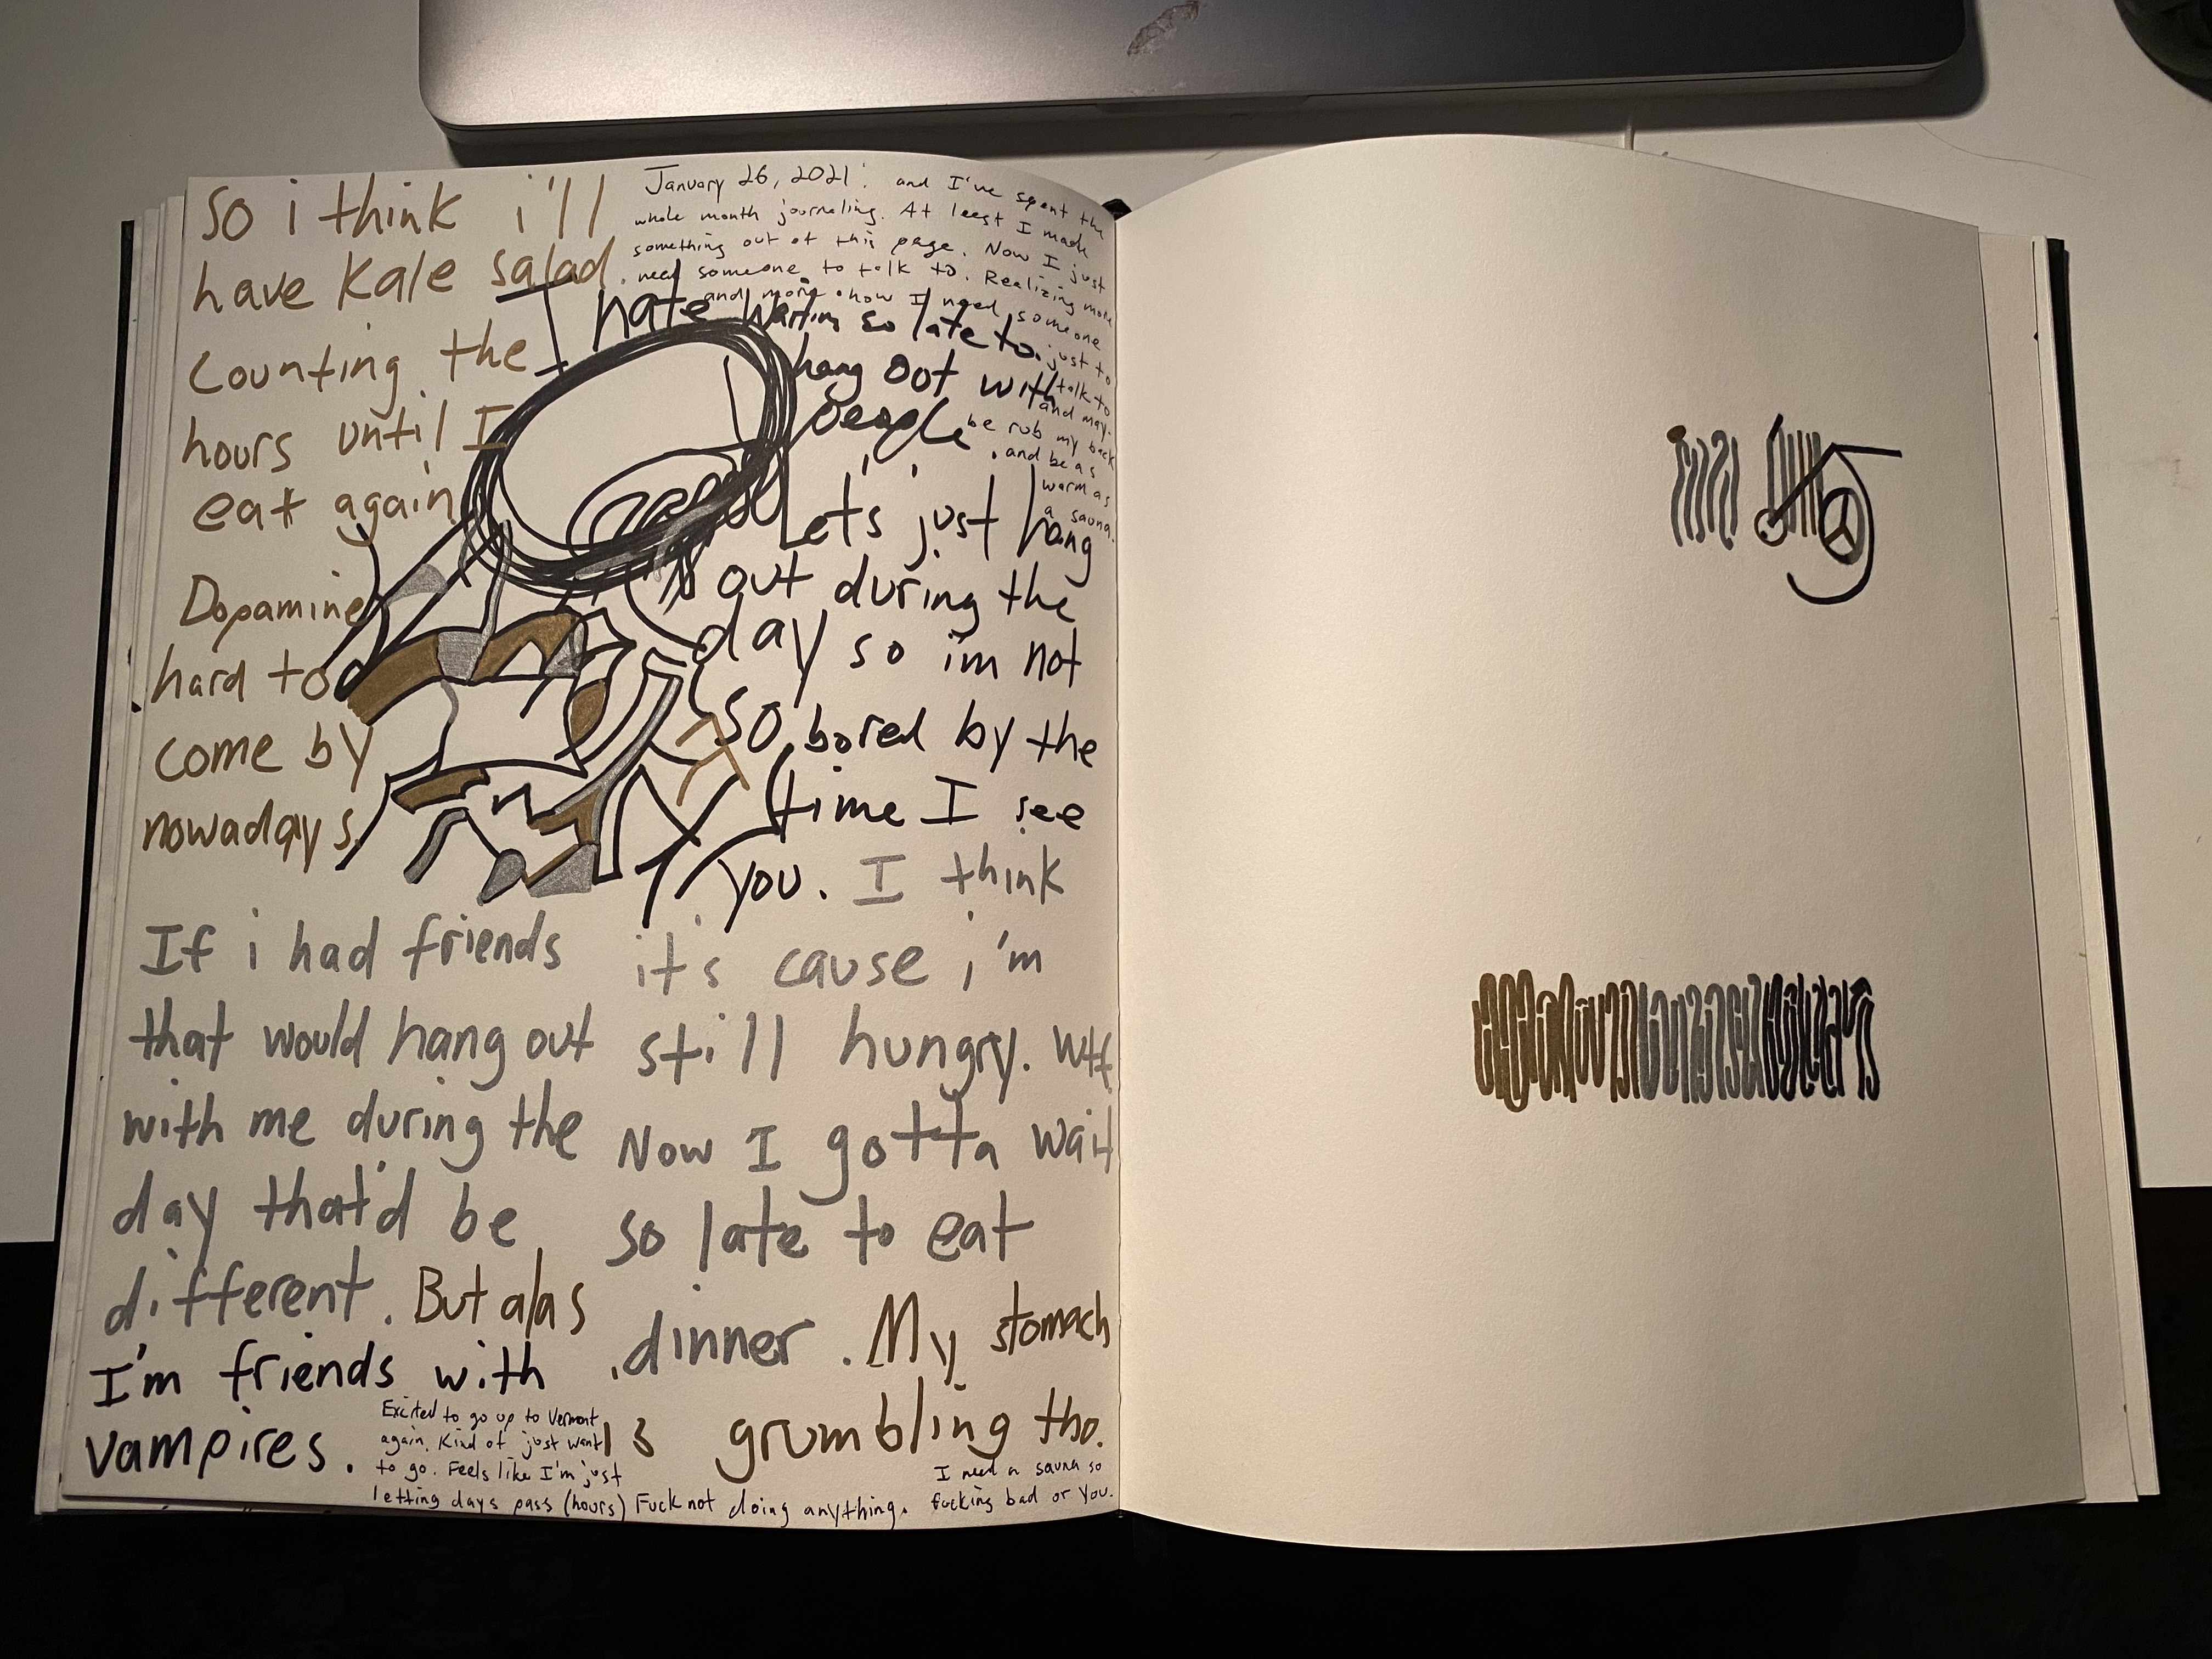 so i think i'll
have kale salad.
Counting the
hours until I
eat again
Dopamine
hard to
come by
nowadays.
If i had friends
that would hang out
with me during the
day that'd be
different. But alas
I'm friends with
vampires.
January 26, 2021: and I've spent the
whole month journaling. At leest I made
something out of this page. Now I just
need someone to talk to. Realizing more
and more how I need someone
just to
talk to
and may-
be rub my back
and be as
warm as
a sauna.
I hate waiting so late to
hang out with
people.
Let's just hang
out during the
day so im not
so bored by the
time I see
you. I think
it's cause i'm
still hungry. Wtf.
Now I gotta wait
so late to eat
dinner. My stomach
is grumbling tho.
Excited to go up to Vermont
again. Kind of just want
to go. Feels like I'm just
letting days pass (hours) Fuck not doing anything.
I need a sauna so
fucking bad or you.